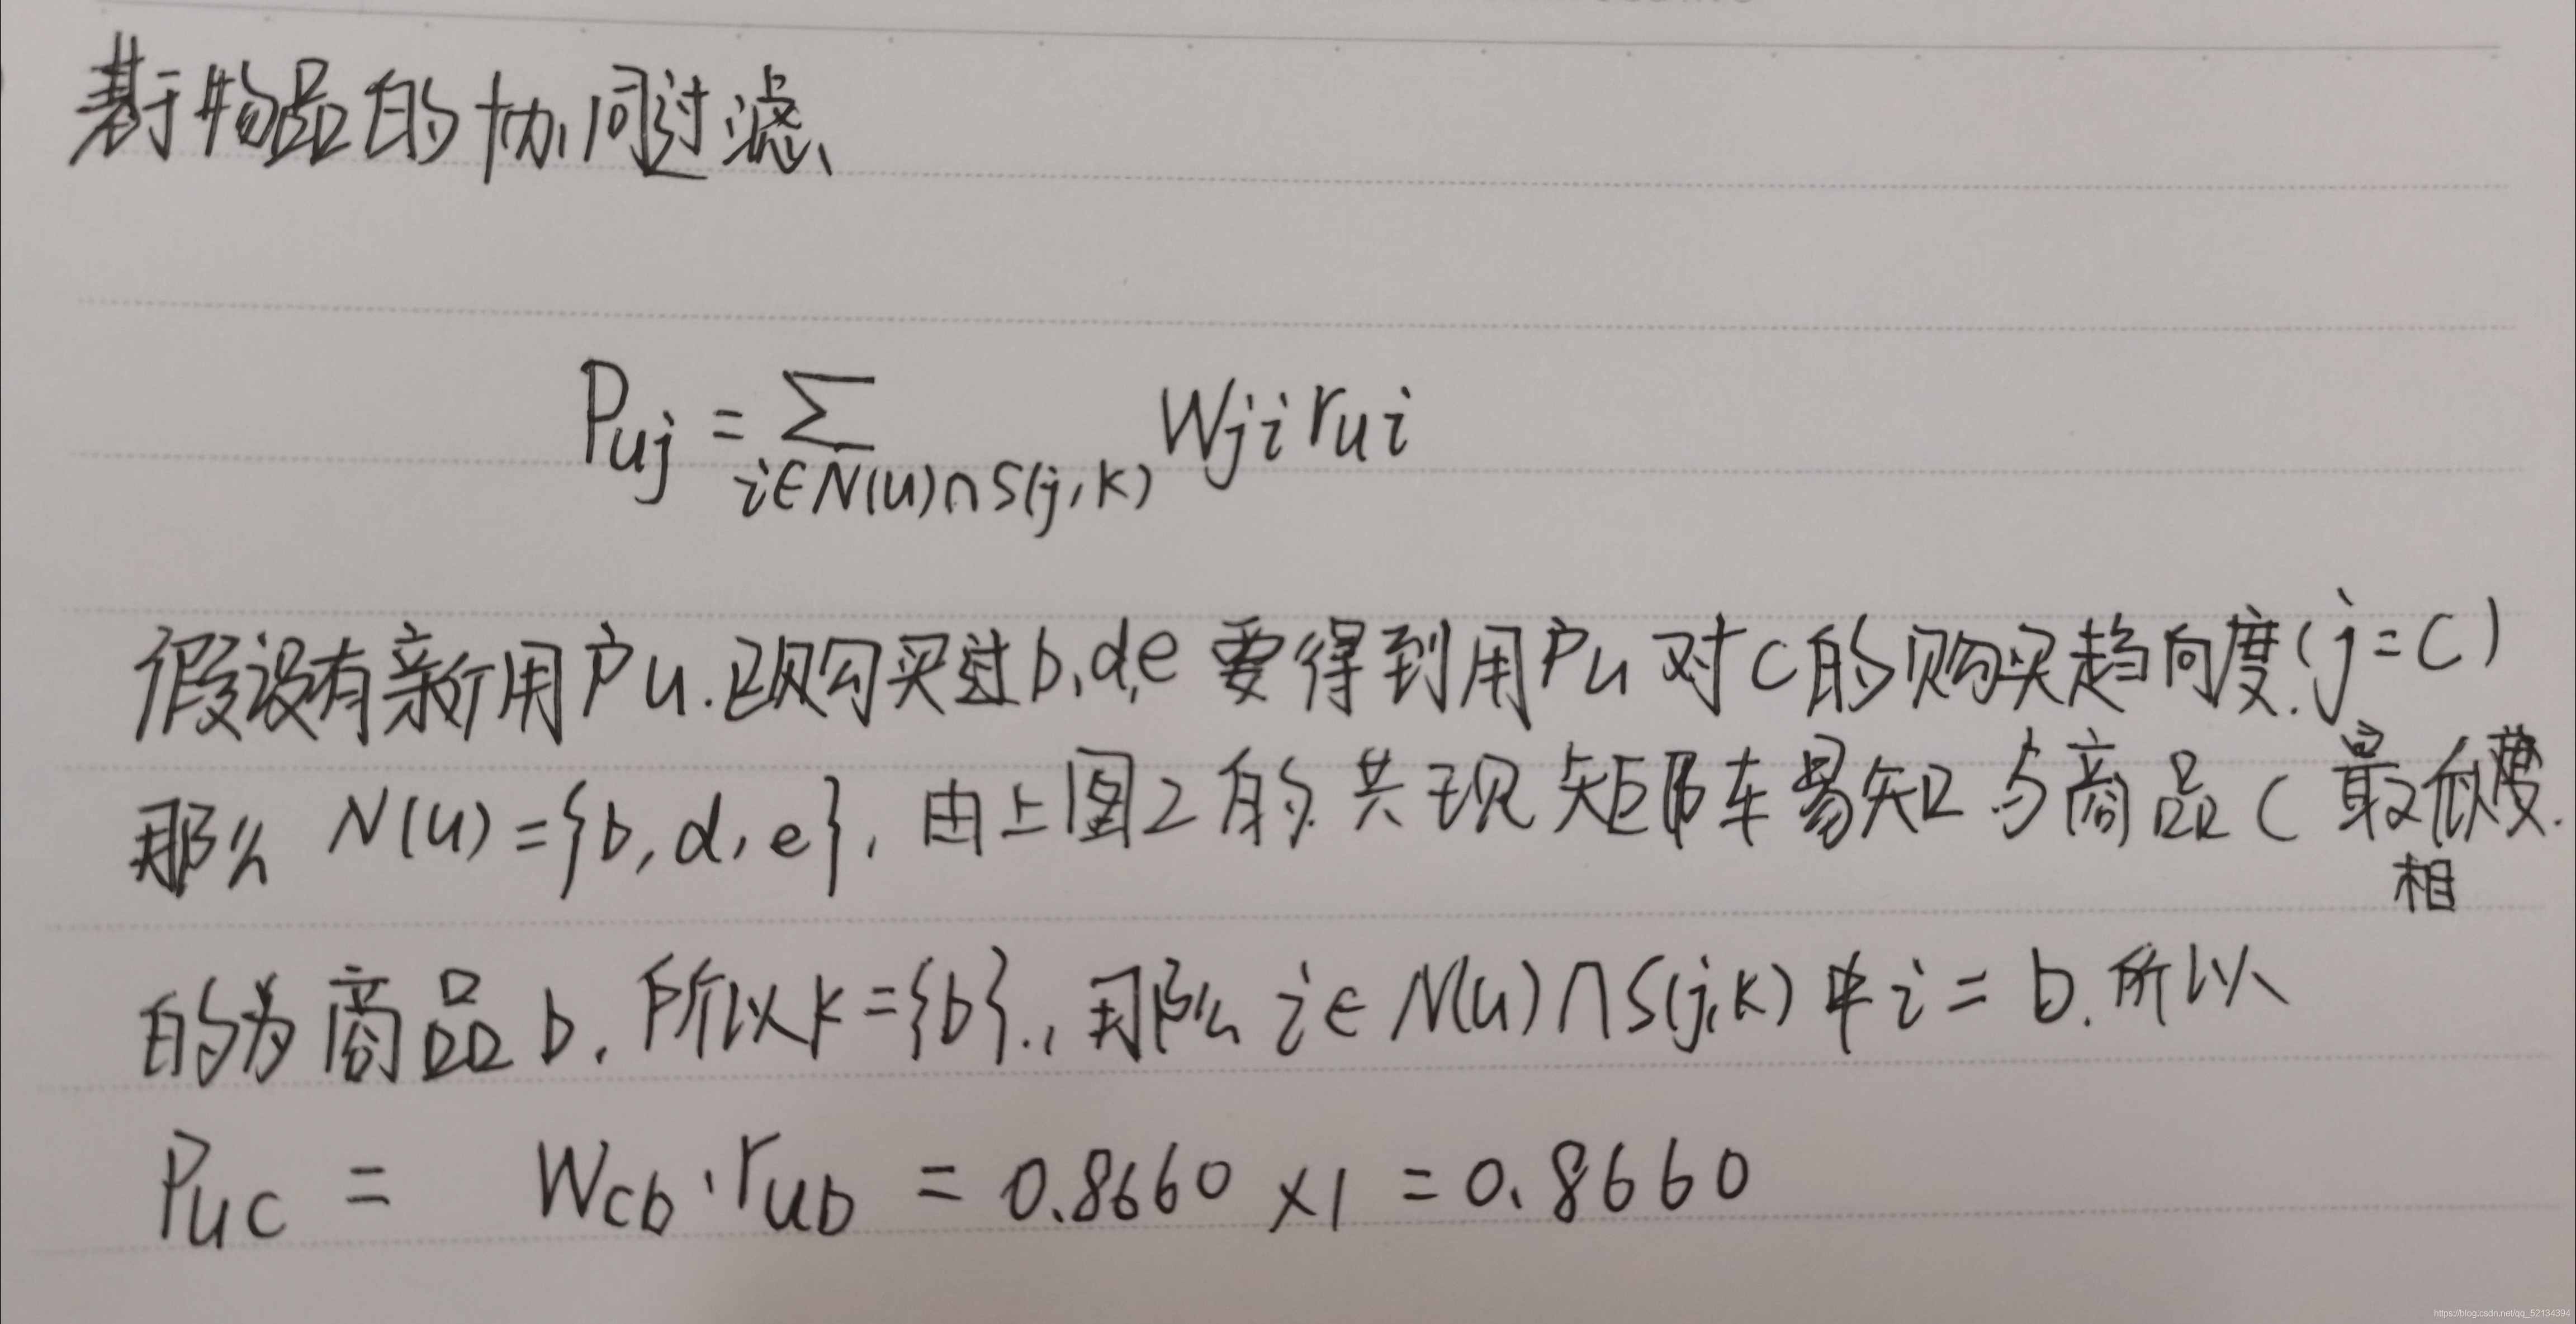 基于物品的协同过滤
Puj = ∑ Wji rui
i∈N(u)∩S(j,k)
假设有新用户u.已购买过b,d,e 要得到用户u对c的购买趋向度.(j=c)
那么 N(u)={b,d,e}, 由上图2的共现矩阵易知与商品c最相似度.
的为商品b.所以k={b}.,那么 i∈N(u)∩S(j,k)中i=b.所以
Puc = Wcb·rub = 0.8660×1=0.8660
https://blog.csdn.net/qq_52134394